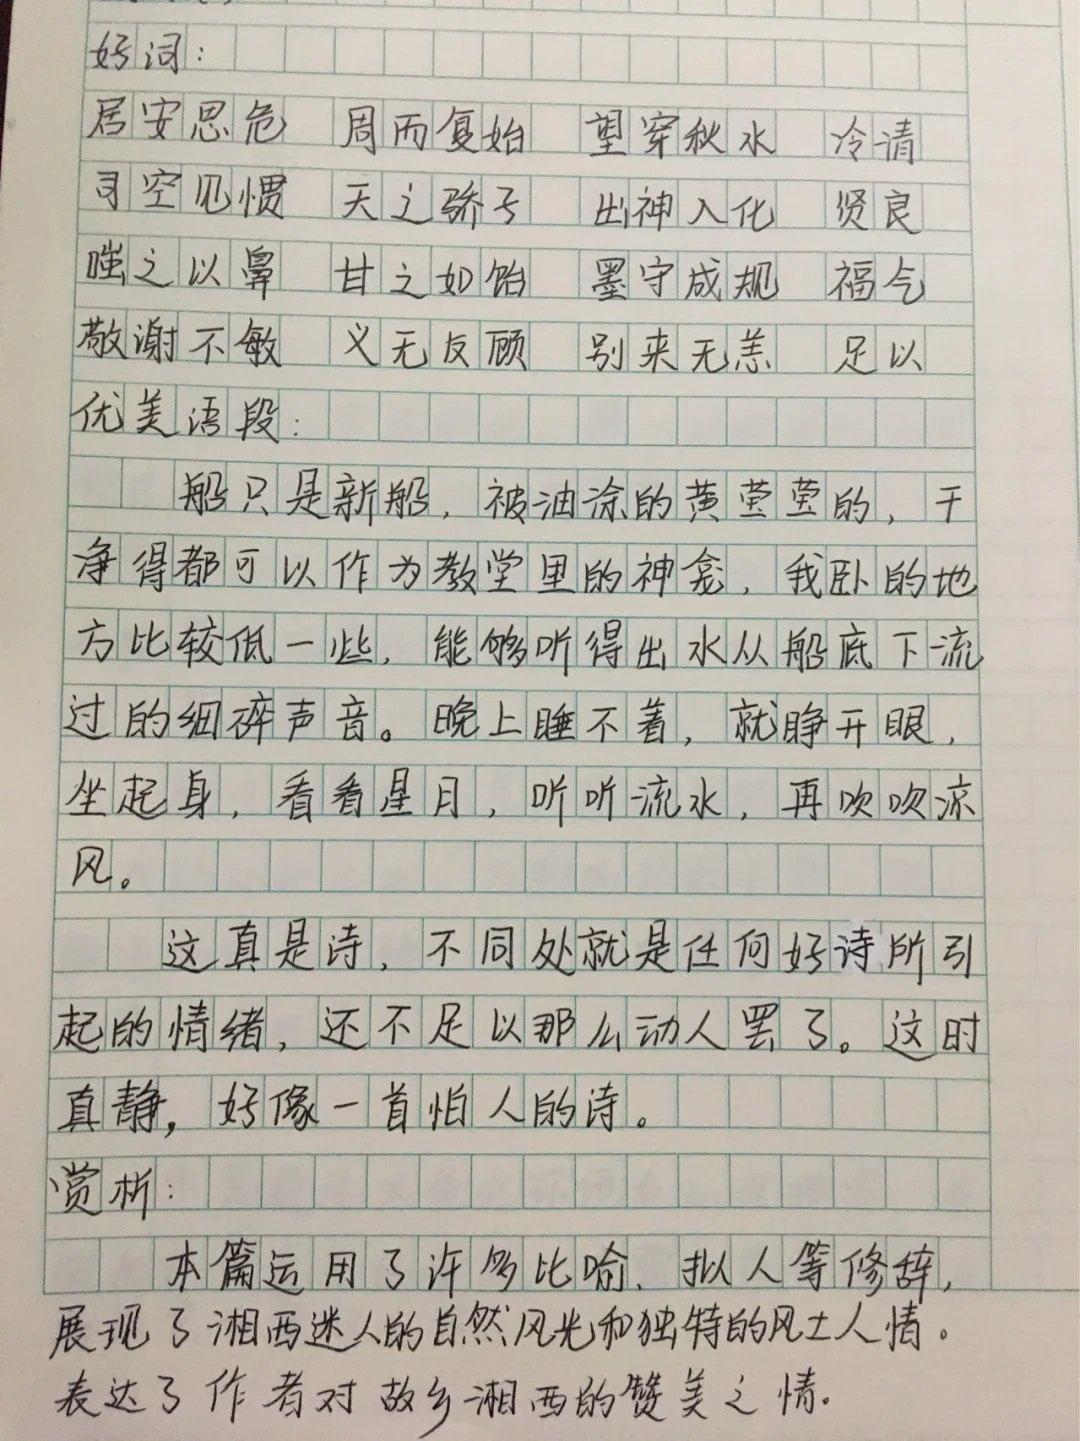 好词：
居安思危 周而复始 望穿秋水 冷清
司空见惯 天之骄子 出神入化 贤良
嗤之以鼻 甘之如饴 墨守成规 福气
敬谢不敏 义无反顾 别来无恙 足以
优美语段：
船只是新船，被油涂的黄莹莹的，干
净得都可以作为教堂里的神龛，我卧的地
方比较低一些，能够听得出水从船底下流
过的细碎声音。晚上睡不着，就睁开眼，
坐起身，看看星月，听听流水，再吹吹凉
风。
这真是诗，不同处就是任何好诗所引
起的情绪，还不足以那么动人罢了。这时
真静，好像一首怕人的诗。
赏析：
本篇运用了许多比喻、拟人等修辞，
展现了湘西迷人的自然风光和独特的风土人情。
表达了作者对故乡湘西的赞美之情.